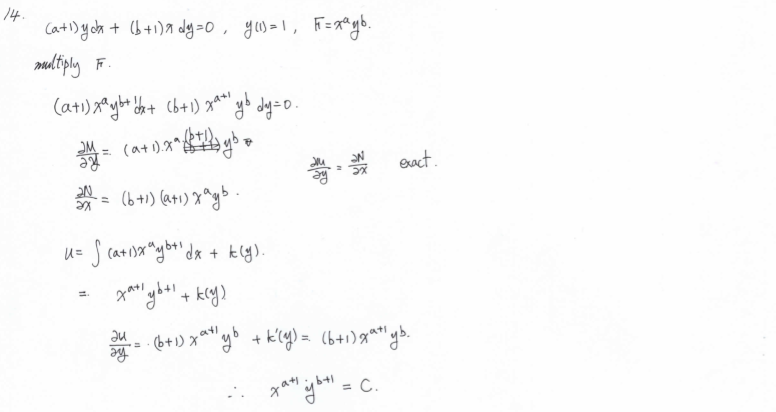 14.
(a+1) y dx + (b+1) x dy = 0 , y(1) = 1 , F = x^a y^b.
multiply F.
(a+1) x^a y^{b+1} dx + (b+1) x^{a+1} y^b dy = 0.
∂M/∂y = (a+1). x^a (b+1) y^b
∂N/∂x = (b+1) (a+1) x^a y^b.
∂M/∂y = ∂N/∂x exact.
u = ∫ (a+1) x^a y^{b+1} dx + k(y).
= x^{a+1} y^{b+1} + k(y)
∂u/∂y = (b+1) x^{a+1} y^b + k'(y) = (b+1) x^{a+1} y^b.
∴ x^{a+1} y^{b+1} = C.